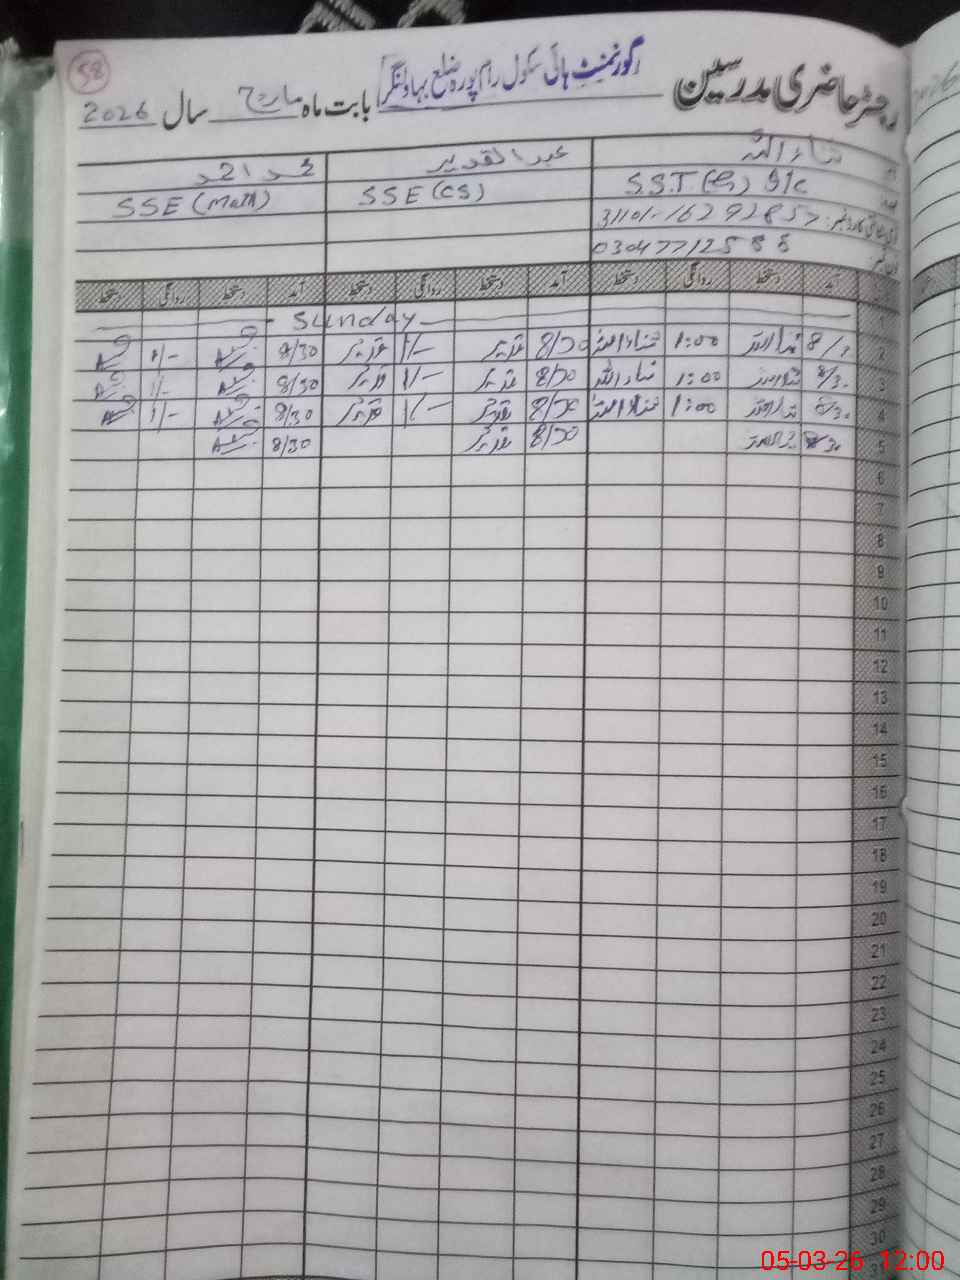 58
رجسٹر حاضری مدرسین گورنمنٹ ہائی سکول رام پورہ ضلع بہاولنگر بابت ماہ مارچ سال 2026
ثناء اللہ عبدالقدیر محمد احمد
S.S.T (G) I/c SSE (CS) SSE (Math)
03047712585
آمد دستخط روانگی دستخط آمد دستخط روانگی دستخط آمد دستخط روانگی دستخط
1 Sunday
2 8/30 ثناء اللہ 1:00 ثناء اللہ 8/30 قدیر 1/- قدیر 8/30 1/-
3 8/30 ثناء اللہ 1:00 ثناء اللہ 8/30 قدیر 1/- قدیر 8/30 1/-
4 8/30 ثناء اللہ 1:00 ثناء اللہ 8/30 قدیر 1/- قدیر 8/30 1/-
5 8/30 ثناء اللہ 8/30 قدیر 8/30
6
7
8
9
10
11
12
13
14
15
16
17
18
19
20
21
22
23
24
25
26
27
28
29
30
31
05-03-26 12:00